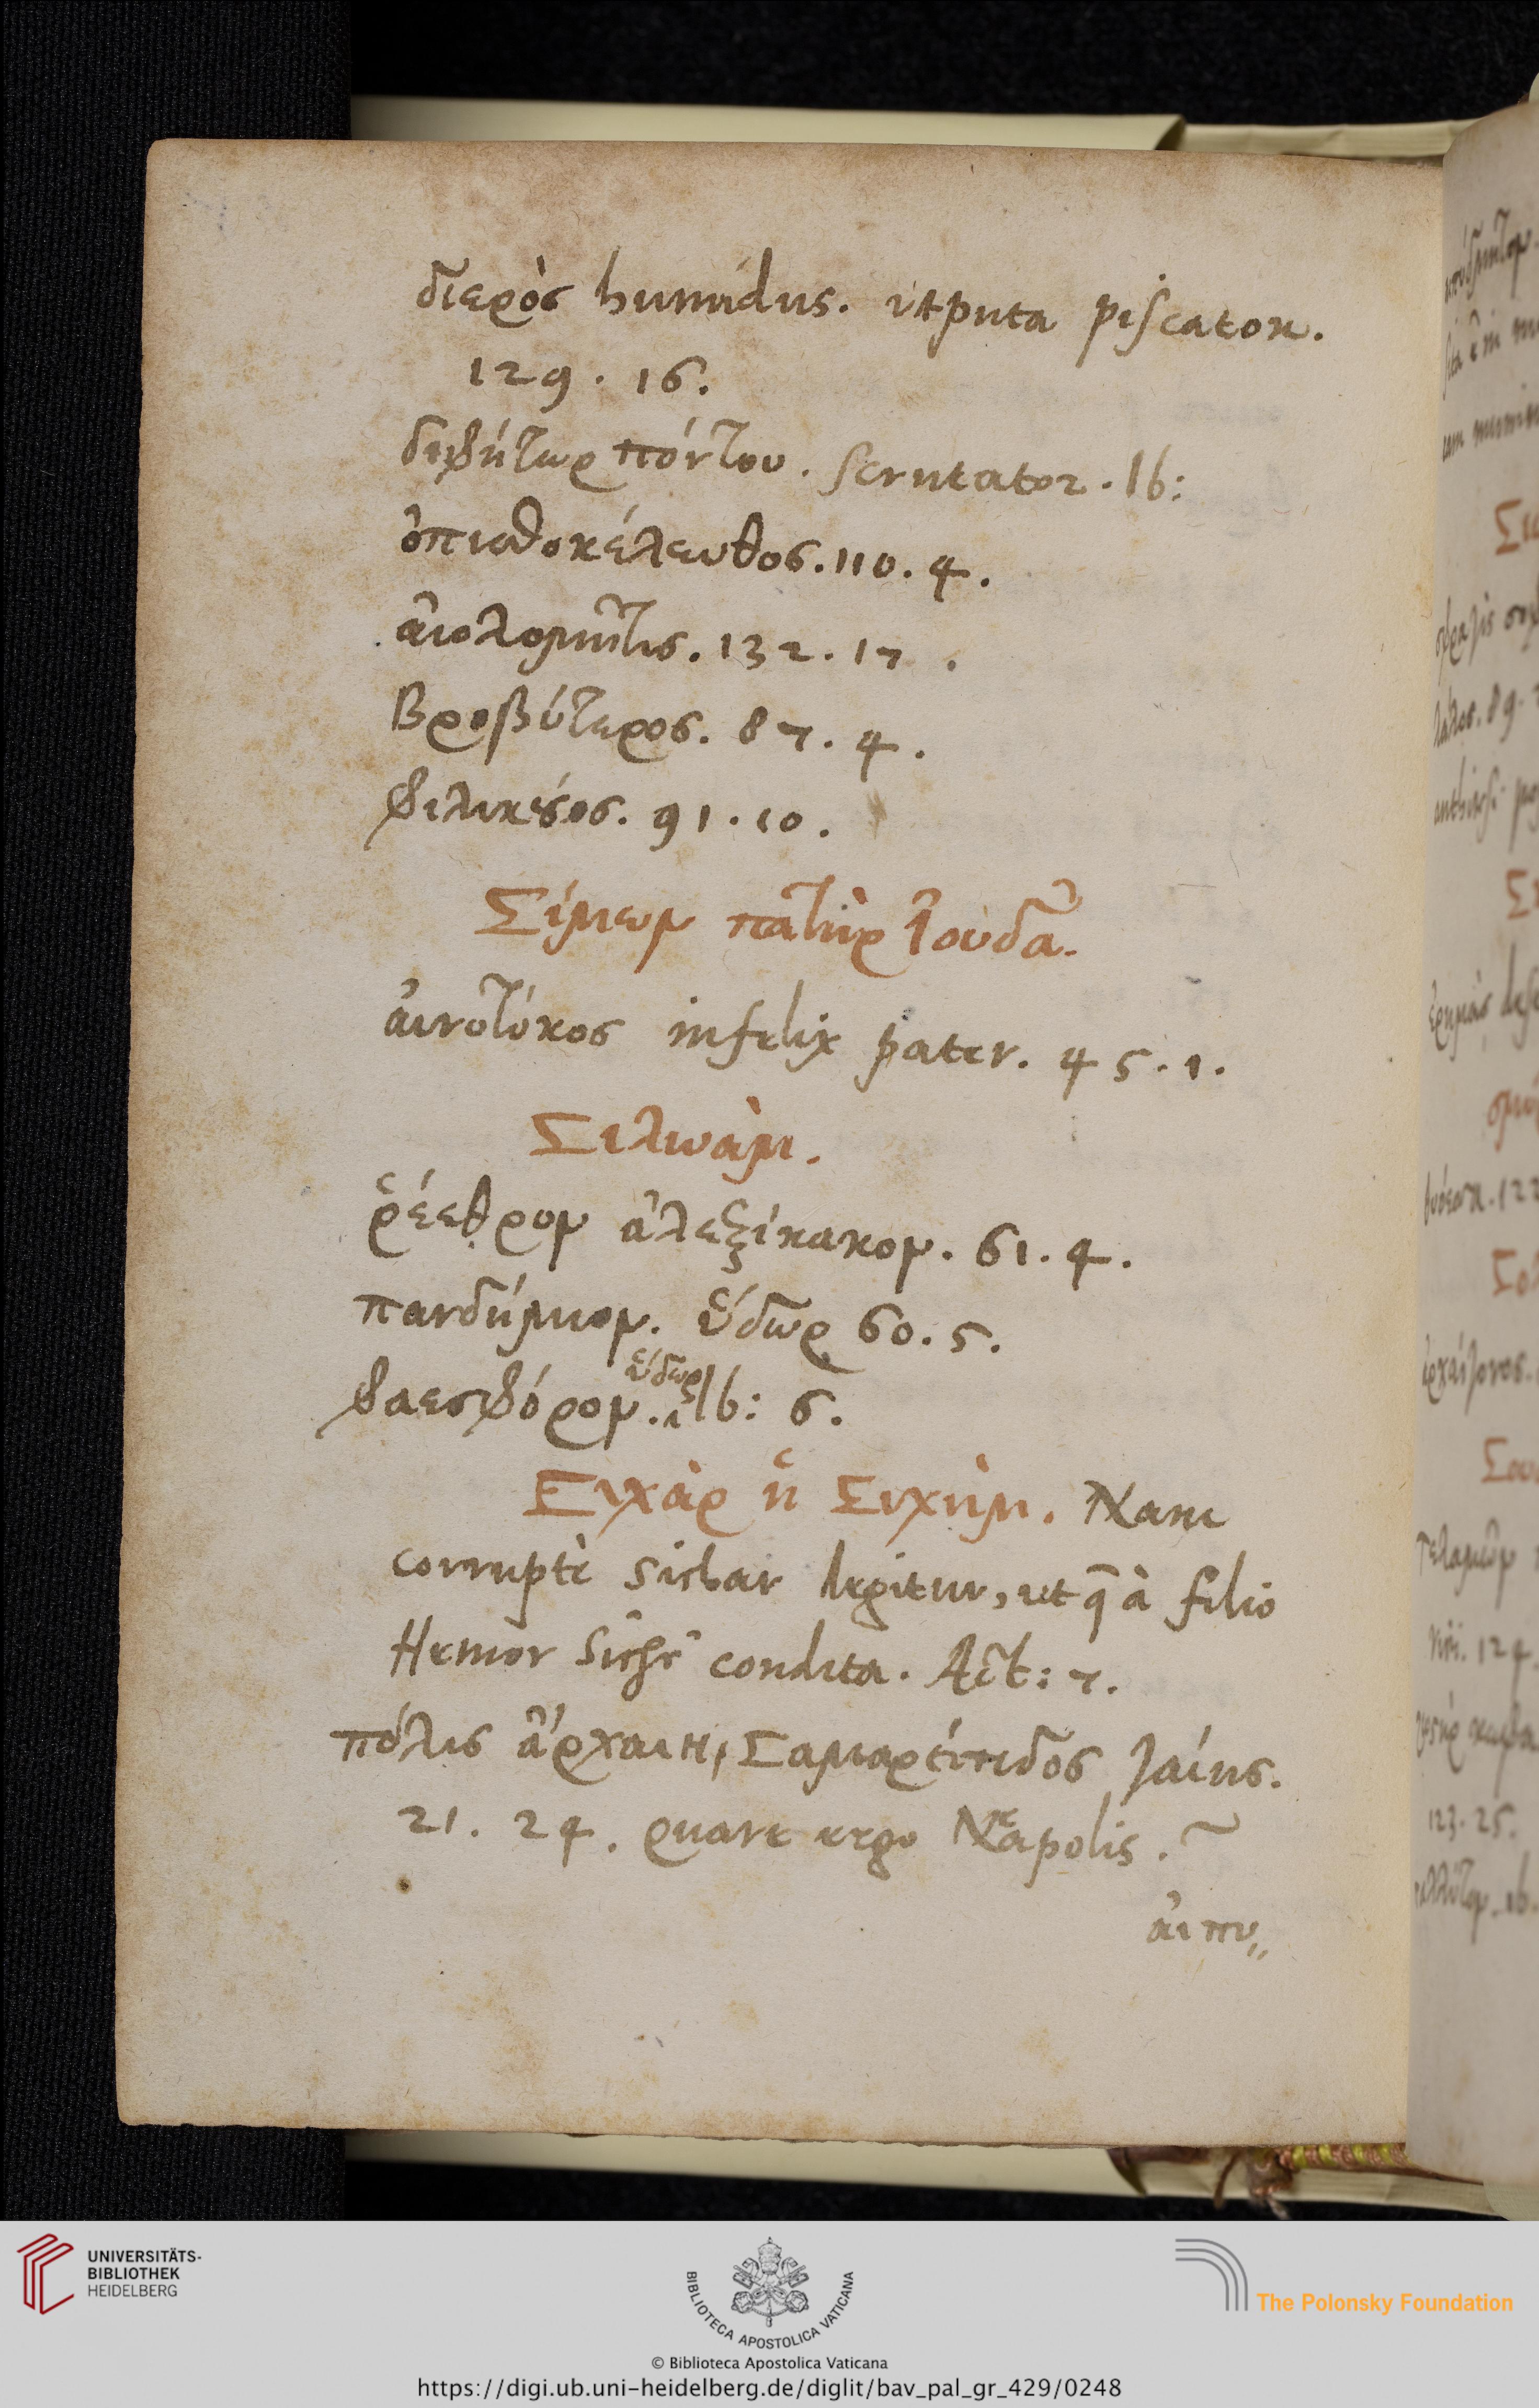 διερὸς humidus. utputa piscator.
129. 16.
διφήτωρ πόντου. scrutator. Ib:
ὀπισθοκέλευθος. 110. 4.
αἰολομῆτις. 132. 17.
Πρεσβύτερος. 87. 4.
φιλικέσος. 91. 10.
Σίμων πατὴρ Ἰούδα.
αἰνοτόκος infelix pater. 45. 1.
Σιλωάμ.
ῥέεθρον ἀλεξίκακον. 61. 4.
πανδήμιον. ὕδωρ 60. 5.
φαεσφόρον. ὕδωρ Ib: 6.
Σιχὰρ ἢ Σιχήμ. Nam
corruptè Sichar legitur, ut q̄ à filio
Hemor Sichē condita. Act: 7.
πόλις ἀρχαίη, Σαμαρείτιδος γαίης.
21. 24. quare ergo Neapolis.
αἰπυ,,
UNIVERSITÄTS-
BIBLIOTHEK
HEIDELBERG
BIBLIOTECA APOSTOLICA VATICANA
The Polonsky Foundation
© Biblioteca Apostolica Vaticana
https://digi.ub.uni-heidelberg.de/diglit/bav_pal_gr_429/0248